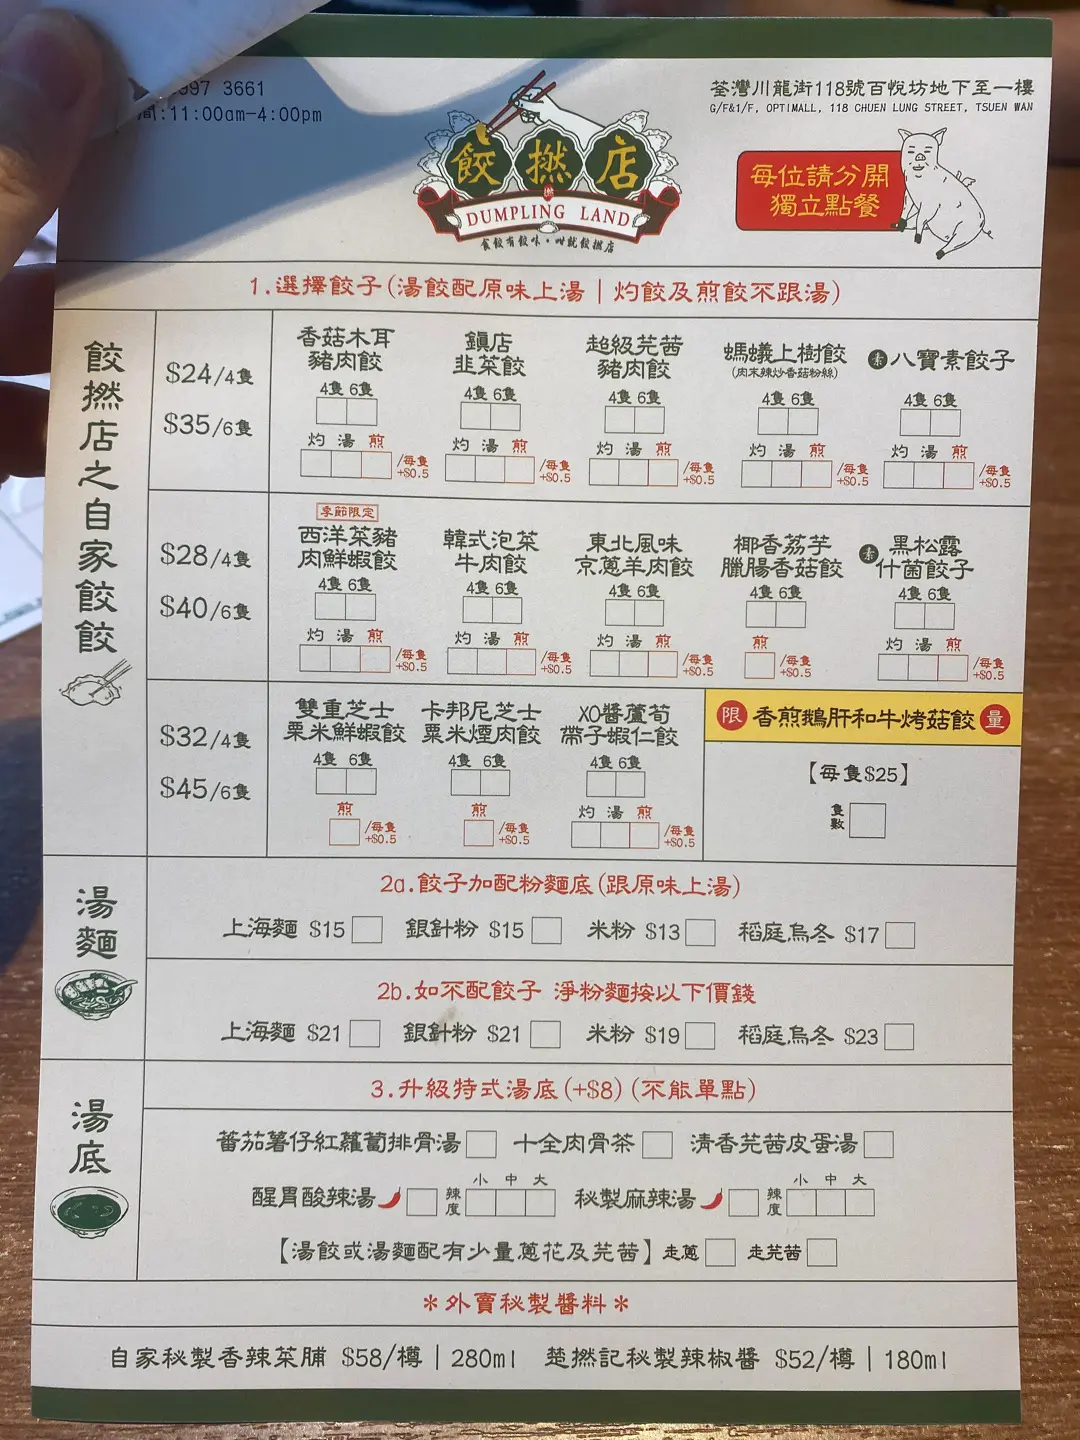 997 3661
間:11:00am-4:00pm
餃撚店
DUMPLING LAND
食餃有餃味·咁就餃撚店
荃灣川龍街118號百悅坊地下至一樓
G/F&1/F, OPTIMALL, 118 CHUEN LUNG STREET, TSUEN WAN
每位請分開
獨立點餐
1.選擇餃子(湯餃配原味上湯|灼餃及煎餃不跟湯)
餃撚店之自家餃餃
$24/4隻
$35/6隻
香菇木耳
豬肉餃
4隻 6隻
灼 湯 煎
/每隻
+$0.5
鎮店
韭菜餃
4隻 6隻
灼 湯 煎
/每隻
+$0.5
超級芫茜
豬肉餃
4隻 6隻
灼 湯 煎
/每隻
+$0.5
螞蟻上樹餃
(肉末辣炒香菇粉絲)
4隻 6隻
灼 湯 煎
/每隻
+$0.5
素 八寶素餃子
4隻 6隻
灼 湯 煎
/每隻
+$0.5
$28/4隻
$40/6隻
季節限定
西洋菜豬
肉鮮蝦餃
4隻 6隻
灼 湯 煎
/每隻
+$0.5
韓式泡菜
牛肉餃
4隻 6隻
灼 湯 煎
/每隻
+$0.5
東北風味
京蔥羊肉餃
4隻 6隻
灼 湯 煎
/每隻
+$0.5
椰香荔芋
臘腸香菇餃
4隻 6隻
煎
/每隻
+$0.5
素 黑松露
什菌餃子
4隻 6隻
灼 湯 煎
/每隻
+$0.5
$32/4隻
$45/6隻
雙重芝士
粟米鮮蝦餃
4隻 6隻
煎
/每隻
+$0.5
卡邦尼芝士
粟米煙肉餃
4隻 6隻
煎
/每隻
+$0.5
XO醬蘆筍
帶子蝦仁餃
4隻 6隻
灼 湯 煎
/每隻
+$0.5
限 香煎鵝肝和牛烤菇餃 量
【每隻$25】
隻數
湯麵
2a.餃子加配粉麵底(跟原味上湯)
上海麵 $15 銀針粉 $15 米粉 $13 稻庭烏冬 $17
2b.如不配餃子 淨粉麵按以下價錢
上海麵 $21 銀針粉 $21 米粉 $19 稻庭烏冬 $23
湯底
3.升級特式湯底(+$8)(不能單點)
蕃茄薯仔紅蘿蔔排骨湯 十全肉骨茶 清香芫茜皮蛋湯
醒胃酸辣湯 辣度 小 中 大 秘製麻辣湯 辣度 小 中 大
【湯餃或湯麵配有少量蔥花及芫茜】走蔥 走芫茜
*外賣秘製醬料*
自家秘製香辣菜脯 $58/樽|280ml 楚撚記秘製辣椒醬 $52/樽|180ml